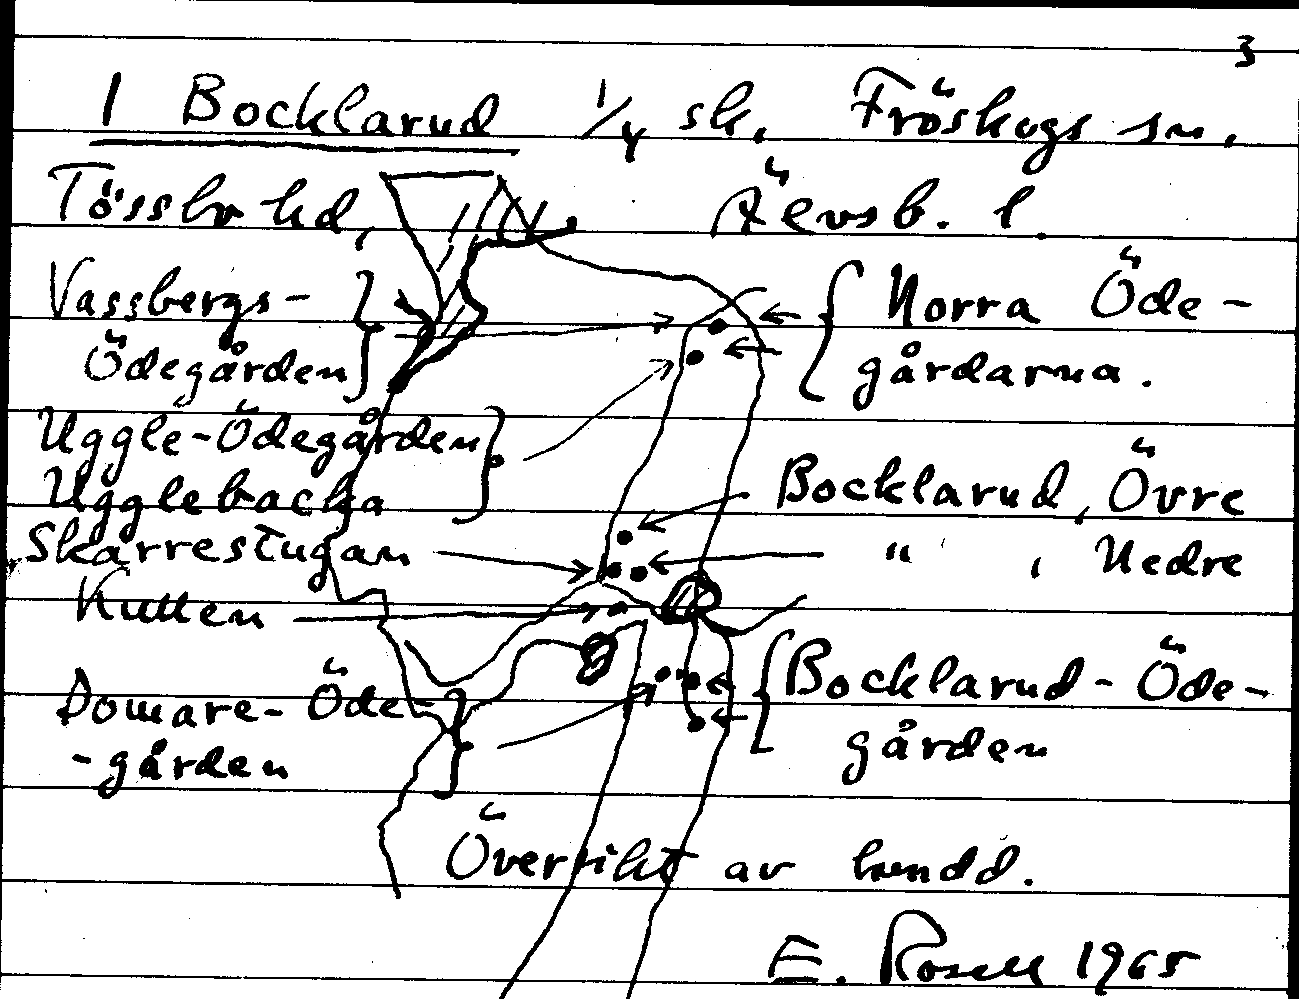 3
1 Bocklarud 1/4 sk. Fröskogs sn.
Tössbo hd, Älvsb. l.
Vassbergs- Norra Öde-
Ödegården gårdarna.
Uggle-Ödegården
Ugglebacka Bocklarud, Övre
Skärrestugan " , Nedre
Kutten
Domare-Öde- Bocklarud-Öde-
-gården gården
Översikt av
E. Rosell 1965